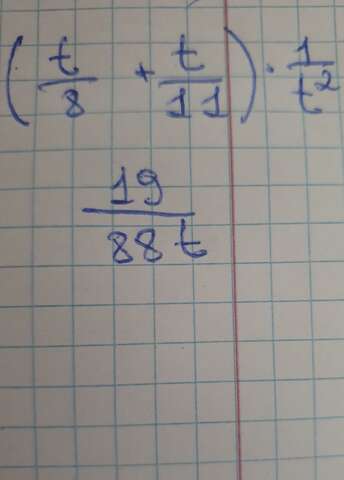 (t/8 + t/11) · 1/t²
19/88t